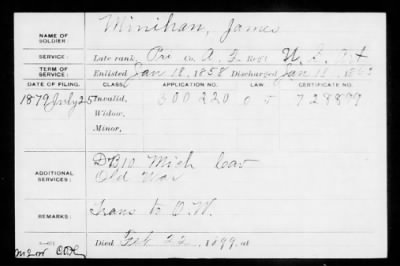 NAME OF SOLDIER: Minihan, James
SERVICE: Late rank, Pri Co. A, 2 Reg't U.S. Art
TERM OF SERVICE: Enlisted Jan 18, 1858 Discharged Jan 18, 186
DATE OF FILING. CLASS. APPLICATION NO. LAW. CERTIFICATE NO.
1879 July 25 Invalid, 300 220 728899
Widow,
Minor,
ADDITIONAL SERVICES: D B 10 Mich Cav
Old War
REMARKS: Trans to O.W.
Died Feb 22, 1899, at